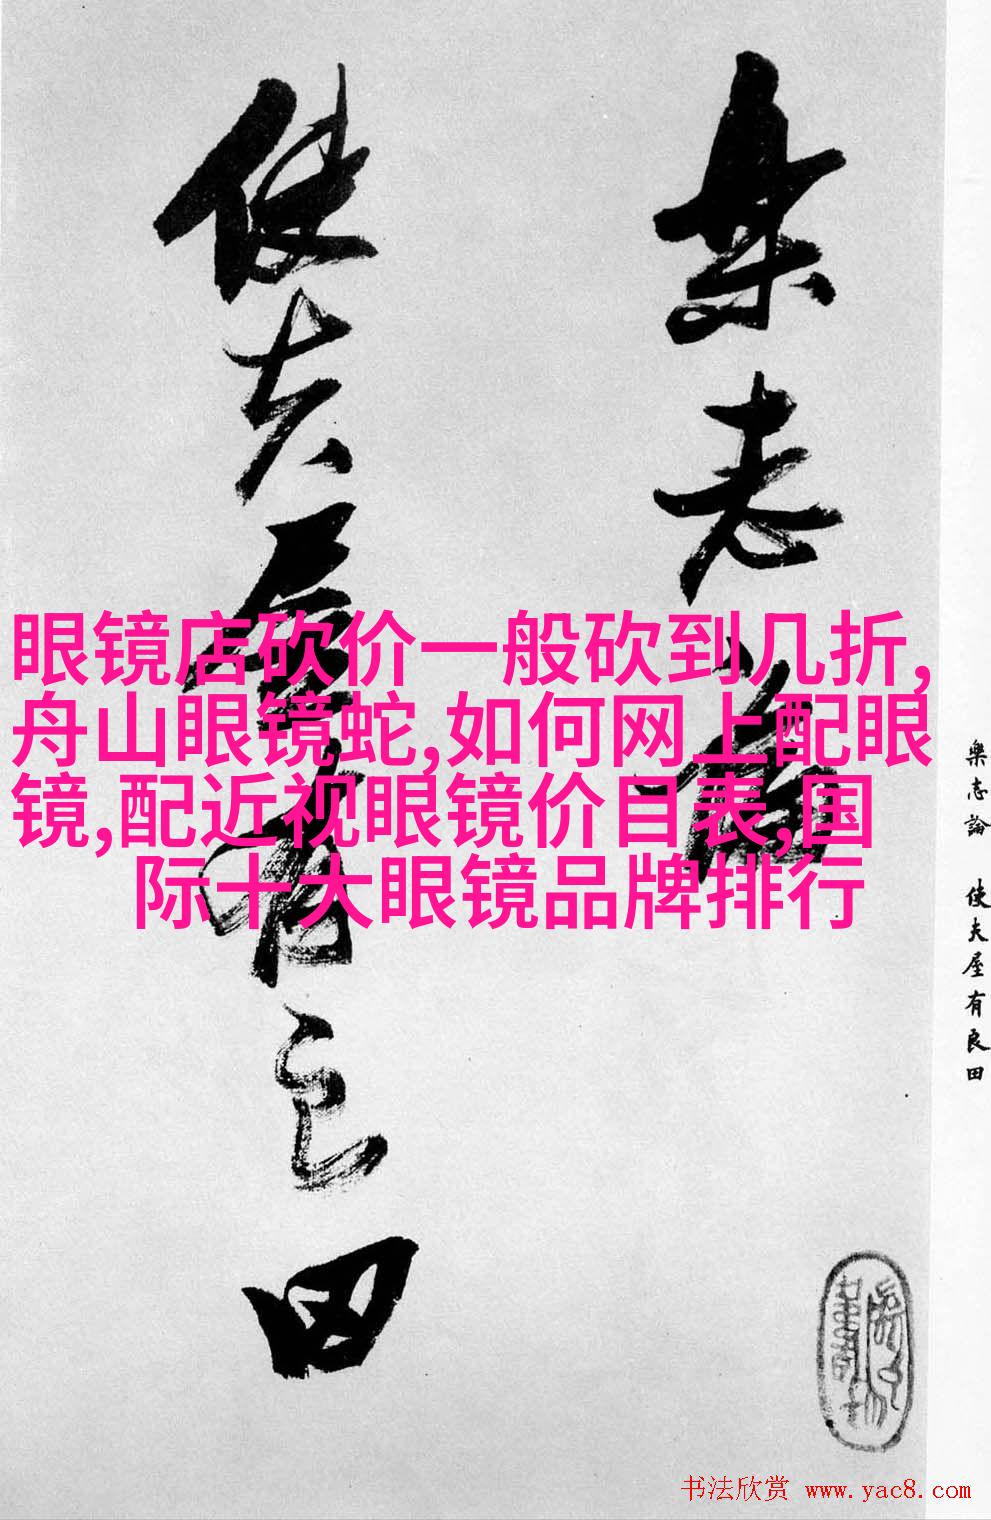 樂志論
使夫屋有良田
眼镜店砍价一般砍到几折,
舟山眼镜蛇,如何网上配眼
镜,配近视眼镜价目表,国
际十大眼镜品牌排行
樂志論 使夫屋有良田
书法欣赏 www.yac8.com